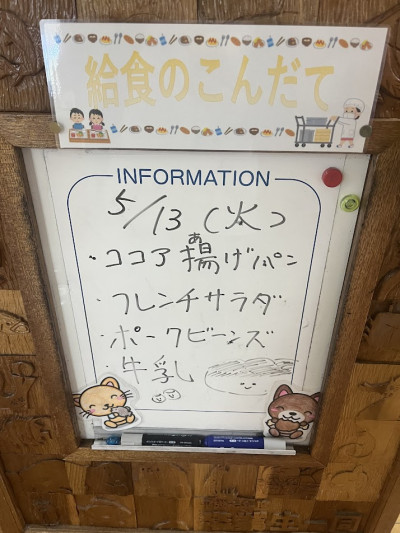 給食のこんだて
INFORMATION
5/13 (火)
・ココア揚げパン
あ
・フレンチサラダ
・ポークビーンズ
牛乳